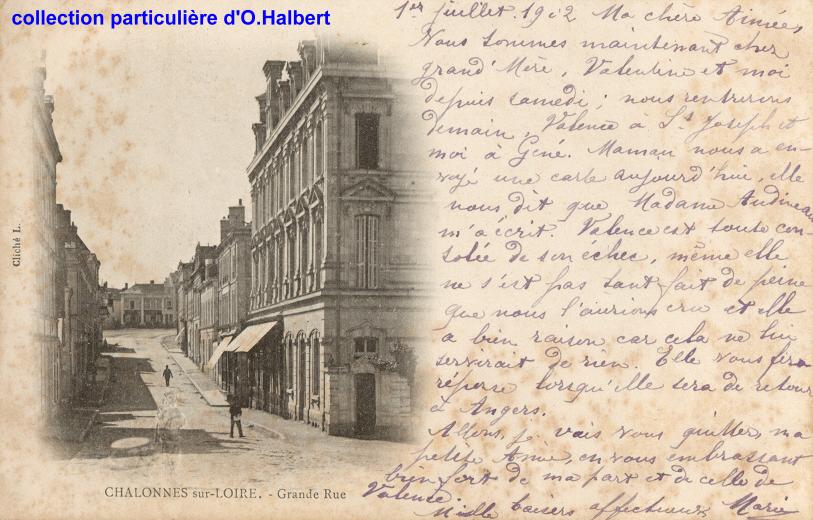 collection particulière d'O.Halbert
1er juillet 1902 Ma chère Aimée,
Nous sommes maintenant chez
grand'Mère, Valentine et moi
depuis samedi ; nous rentrerons
demain, Valence à St Joseph et
moi à Gené. Maman nous a en-
voyé une carte aujourd'hui, elle
nous dit que Madame Audineau
m'a écrit. Valence est toute con-
solée de son échec, même elle
ne s'est pas tant fait de peine
que nous l'aurions cru et elle
a bien raison car cela ne lui
servirait de rien. Elle vous fera
réponse lorsqu'elle sera de retour
à Angers.
Allons, je vais vous quitter, ma
petite Amie, en vous embrassant
bien fort de ma part et de celle de
Valence.
Mille baisers affectueux Marie
Cliché L.
CHALONNES sur-LOIRE. - Grande Rue